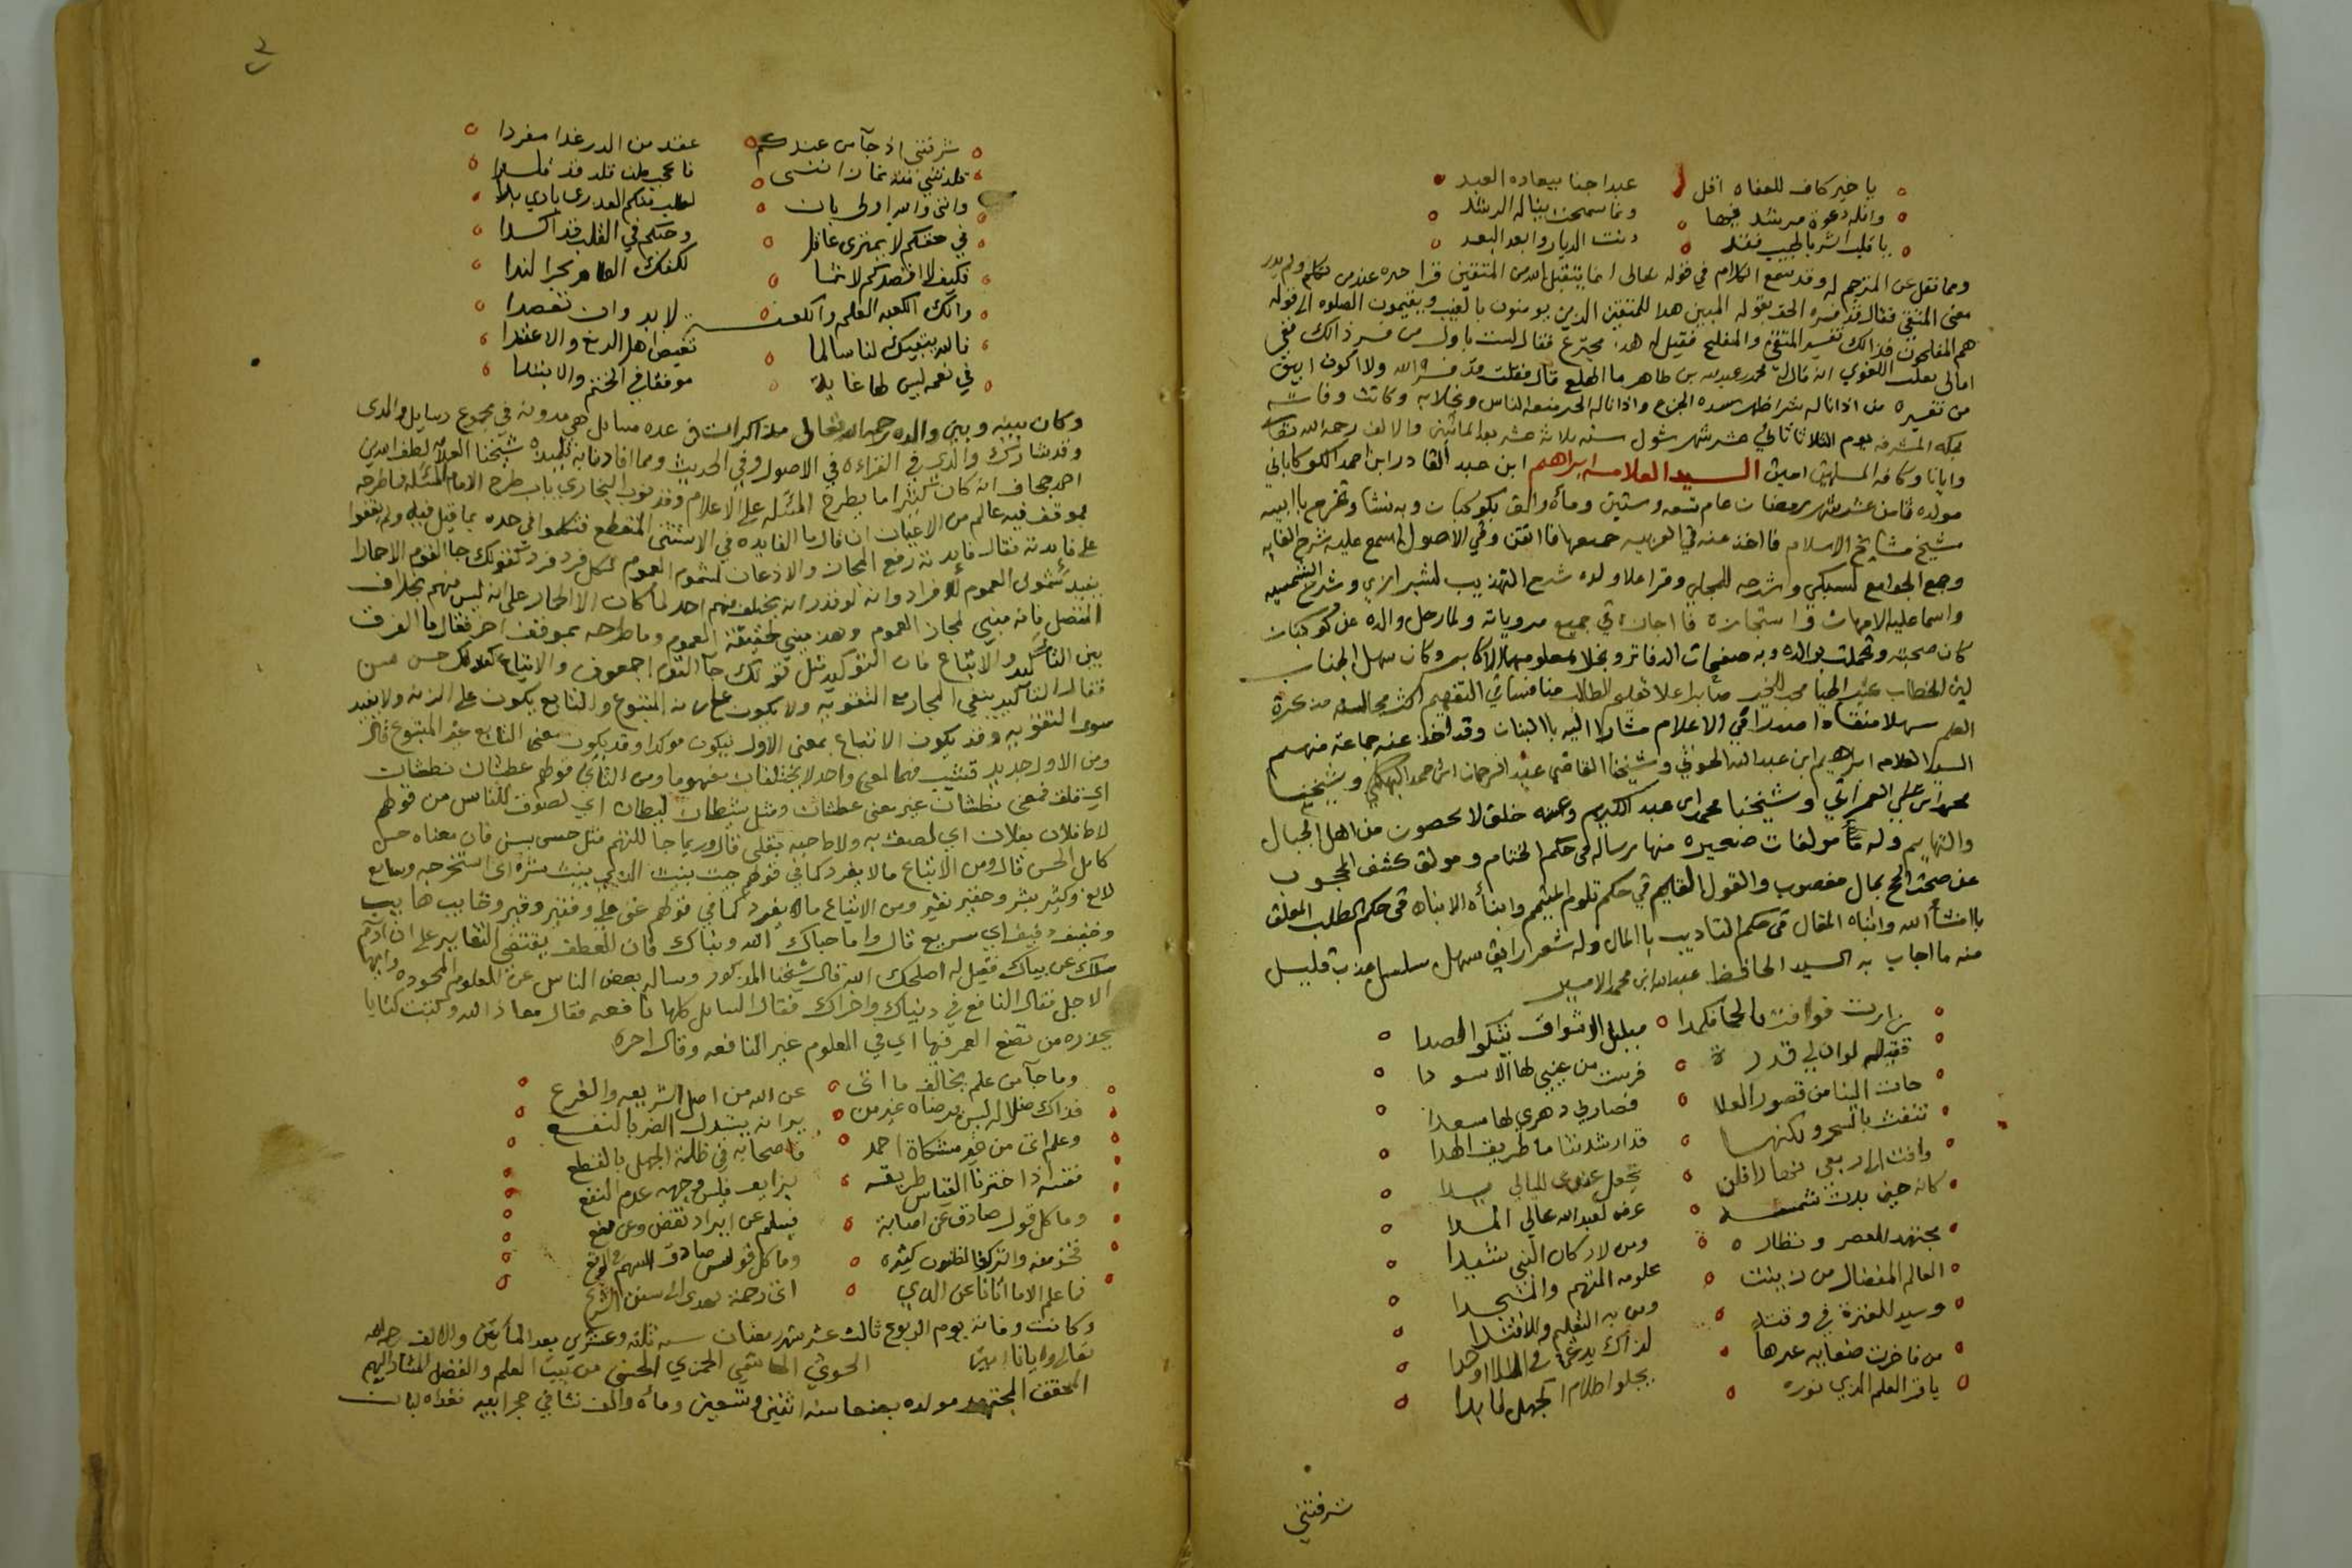 يا خير كاف للعفاه اقل عبدا جنا ببعاده العبد
وانله دعوة مرشد فيها ونما سمحت بناله الرشد
يا قلب ابشر بالحبيب فقد دنت الديار وابعد البعد
ومما نقل عن المترجم له وقد سمع الكلام في قوله تعالى انما يتقبل الله من المتقين قرا حده عندمن تكلم ولم يدر
معنى المتقي فقال قد فسره الحق بقوله المبين هدا للمتقين الذين يومنون بالغيب ويقيمون الصلوه الى قوله
هم المفلحون فذالك تفسير المتقي والمفلح فقيل له هذا مخترع فقال لست باول من فسر ذالك ففي
امالي ثعلب اللغوي انه قال لي محمد بن عبدالله بن طاهر ما الهلع قال فقلت قد فسره الله ولا اكون ابين
من تفسيره من اذا ناله شر اظهر شده الجزع واذا ناله الخير منعه الناس وبخلابه وكانت وفاته
بمكه المشرفه يوم الثلاثا ثاني عشر شهر شول سنه ثلاثة عشر بعد المائتين والالف رحمه الله تعالى
وايانا وكافه المسلمين امين السيد العلامه ابراهيم ابن عبد القادر ابن احمد الكوكباني
مولده ثامن عشر شهر رمضان عام تسعه وستين ومأه والف بكوكبان وبه نشا وتخرج باابيه
شيخ مشايخ الاسلام فااخذ عنه في العربيه جميعها فااتقن وفي الاصول اسمع عليه شرح الغايه
وجمع الجوامع لسبكي وشرحه للمحلي وقرا علا ولده شرح التهذيب لشيرازي وشرح الشمسيه
واسما عليه الامهات واستجازه فااجازه في جميع مروياته ولما رحل والده عن كوكبان
كان صحبته وتجملت بوالده وبه صفحات الدفاتر وتحلا بعلومهما الاكابر وكان سهل الجناب
لين الخطاب عليه الحيا محب للخير صابرا علا تعليم الطالب متانيا في التفهيم اكثر مجالسه مذكرة
العلم سهلا منقادا صدرا في الاعلام مشارا اليه باالبنان وقد اخذ عنه جماعة منهم
السيد العلامه ابراهيم ابن عبدالله الحوثي وشيخنا القاضي عبد الرحمن ابن احمد البهكلي وشيخنا
محمد ابن علي العمراني وشيخنا محمد ابن عبد الكريم وعنه خلق لا يحصون من اهل الجبال
والتهايم وله مولفات صغيره منها رساله في حكم الختام ومولف كشف المحجوب
عن صحت الحج بمال مغصوب والقول القيم في حكم تلوم المتيمم وانبأه الانباه في حكم الطلب المعلق
باانشأ الله وانباه المقال في حكم التاديب باالمال وله شعر رايق سهل سلسل عذب قليل
منه ما اجاب به السيد الحافظ عبدالله ابن محمد الامير
زارت فوافت بالحافكمدا مبلبل الاشواق يشكو الصدا
فقبله لوان لي قدرة فرشت من عيني لها الاسودا
جات الينا من قصور العلا فصار لي دهري بها مسعدا
تنفث بالسحر ولكنها قد ارشدتنا ما طريق الهدا
وافت الى ربعي نهارا فلن تجعل عندي لليالي يدا
كانه حين بدت شمسه غرة لعبدالله عالي المدا
مجتهد العصر ونظاره ومن لاركان النبي شيدا
العالم المفضال من زينت علومه المتهم والمنجدا
وسيد للعترة في وقته ومن به التعليم والاقتدا
من فاخرت صنعابه غيرها لذاك يدعى في الملا اوحدا
يافز العلم الذي نوره يجلو اظلام الجهل لما بدا
شرفتني
شرفتني اذ جآ من عندكم عقد من الدر غدا مفردا
قلدتني منة فما ن انثنى فاعجب لمن قلد قد قلدا
وانني والله اولى بان
في حقكم لا يمتري عاقل وحبكم في القلب قد اكدا
فكيف لا اقصدكم لاثما لكفك الغامر بحر الندا
وانك الكعبه العلم والكعبة لا بد وان تقصدا
فالله يبقيك لنا سالما تغيض اهل الزيغ والاعتدا
في نعمه ليس لها غاية موفقا في الختم والابتدا
وكان بينه وبين والده رحمه الله تعالى مذاكرات في عده مسايل هي مدونة في مجموع رسايل والدى
وقد شارك والدي في القراءه في الاصول وفي الحديث ومما افادنا به تلميذه شيخنا العلامه لطف الله بن
احمد جحاف انه كان كثيرا ما يطرح المسئله على الاعلام وقد بوب البخاري باب طرح الامام المسئله فما طرحه
بموقف فيه عالم من الاعيان ان قال ما الفايده في الاستثنى المنقطع فتكلموا في حده بما قيل فيه ولم يقفوا
على فايدته فقال فايدته رفع المجاز والاذعان لشمول العموم لكل فرد فرد كقولك جا القوم الاحمارا
يفيد شمول العموم للافراد وانه لو قدر انه يختلف منهم احد لما كان الا الحمار على انه ليس منهم بخلاف
المتصل فانه مبني لمجاز العموم وهذ مبني لحقيقة العموم وما طرحه بموقف اخر فقال ما الفرق
بين التأكيد والاتباع فان التوكيد مثل قولك جآ القوم اجمعون والاتباع كقولك حسن بسن
فقال التأكيد ينفي المجاز مع التقويه ولا يكون على زنة المتبوع والتابع يكون على الزنه ولا يفيد
سوى التقويه وقد يكون الاتباع بمعنى الاول فيكون موكدا وقد يكون معنى التابع غير المتبوع قال
ومن الاول جديد قشيب فهما لمعنى واحد لا يختلفان مفهوما ومن الثاني قولهم عطشان نطشان
اي قلق فمعنى نطشان غير معنى عطشان ومثل شيطان ليطان اي لصوق للناس من قولهم
لاط فلان بفلان اي لصق به ولاط حبه بقلبي قال وربما جا للتهم مثل حسن بسن فان معناه حسن
كامل الحسن قال ومن الاتباع مالا يفرد كما في قولهم
وكثير بثير وحقير نقير ومن الاتباع مالا يفرد كما في قولهم
وخفيف ذفيف اي سريع قال واما حياك الله وبياك فان العطف يقتضي التغاير على ان
سئلك عن بياك فقيل له اضحكك الله قال شيخنا المذكور وساله بعض الناس عن العلوم المحموده
الاجل فقال النافع في دنياك واخراك فقال السايل كلها نافعه فقال معاذ الله وكتبت كتايا
يحذره من تضيع العمر فيها اي في العلوم غير النافعه وقال اخره
وما جآ من علم يخالف ما اتى عن الله من اصل الشريعه والفرع
فذاك ضلال ليس يرضاه غير من يرا انه يستدرك الضر بالنفع
وعلم اتى من غير مشكاة احمد فاصحابه في ظلمة الجهل بالقطع
فقسه اذا اخترنا القياس طريقه
وما كل قول صادق عن اصابة فيسلم عن ايراد نقض وعن منع
فخذ منه واترك فالظنون كثيره وما كل قوس صادق السهم في الوقع
فما علم الا ما اتانا عن الذي اتى رحمة يهدى الى سنن الشرع
وكانت وفاته يوم الربوع ثالث عشر شهر رمضان سنه ثلثه وعشرين بعد المأتين والالف رحمه الله
تعالى وايانا امين الحوثي الحمزي الحسني من بيت العلم والفضل المشار اليهم
المحقق المجتهد مولده بصنعا سنه اثنين وتسعين ومأه والف نشا في حجر ابيه فغذاه لبان